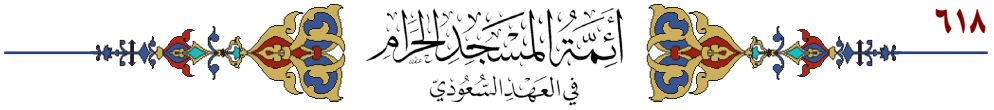 ٦١٨
أَئِمَّةُ المَسْجِدِ الحَرَامِ
في العَهْدِ السُّعُودِيّ